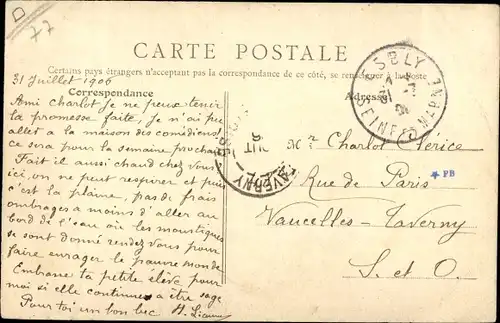 77
CARTE POSTALE
Certains pays étrangers n'acceptant pas la correspondance de ce côté, se renseigner à la poste
31 Juillet 1906
Correspondance
Adresse
Ami Charlot je ne peux tenir
la promesse faite, je n'ai pu
allet a la maison des comédiens
ce sera pour la semaine prochain
Fait il aussi chaud chez vous
ici, on ne peut respirer et puis
c'est la plaine, pas de frais
ombrages a moins d'aller au
bord de l'eau où les moustiques
se sont donné rendez vous pour
faire enrager le pauvre monde
Embrasse ta petite élève pour
moi si elle continue a être sage
Pour toi un bon bec H.
Mr Charlot Clérice
Rue de Paris
Vaucelles-Taverny
S. et O.
ESBLY
SEINE ET MARNE
TAVERNY
JUIL
* PB